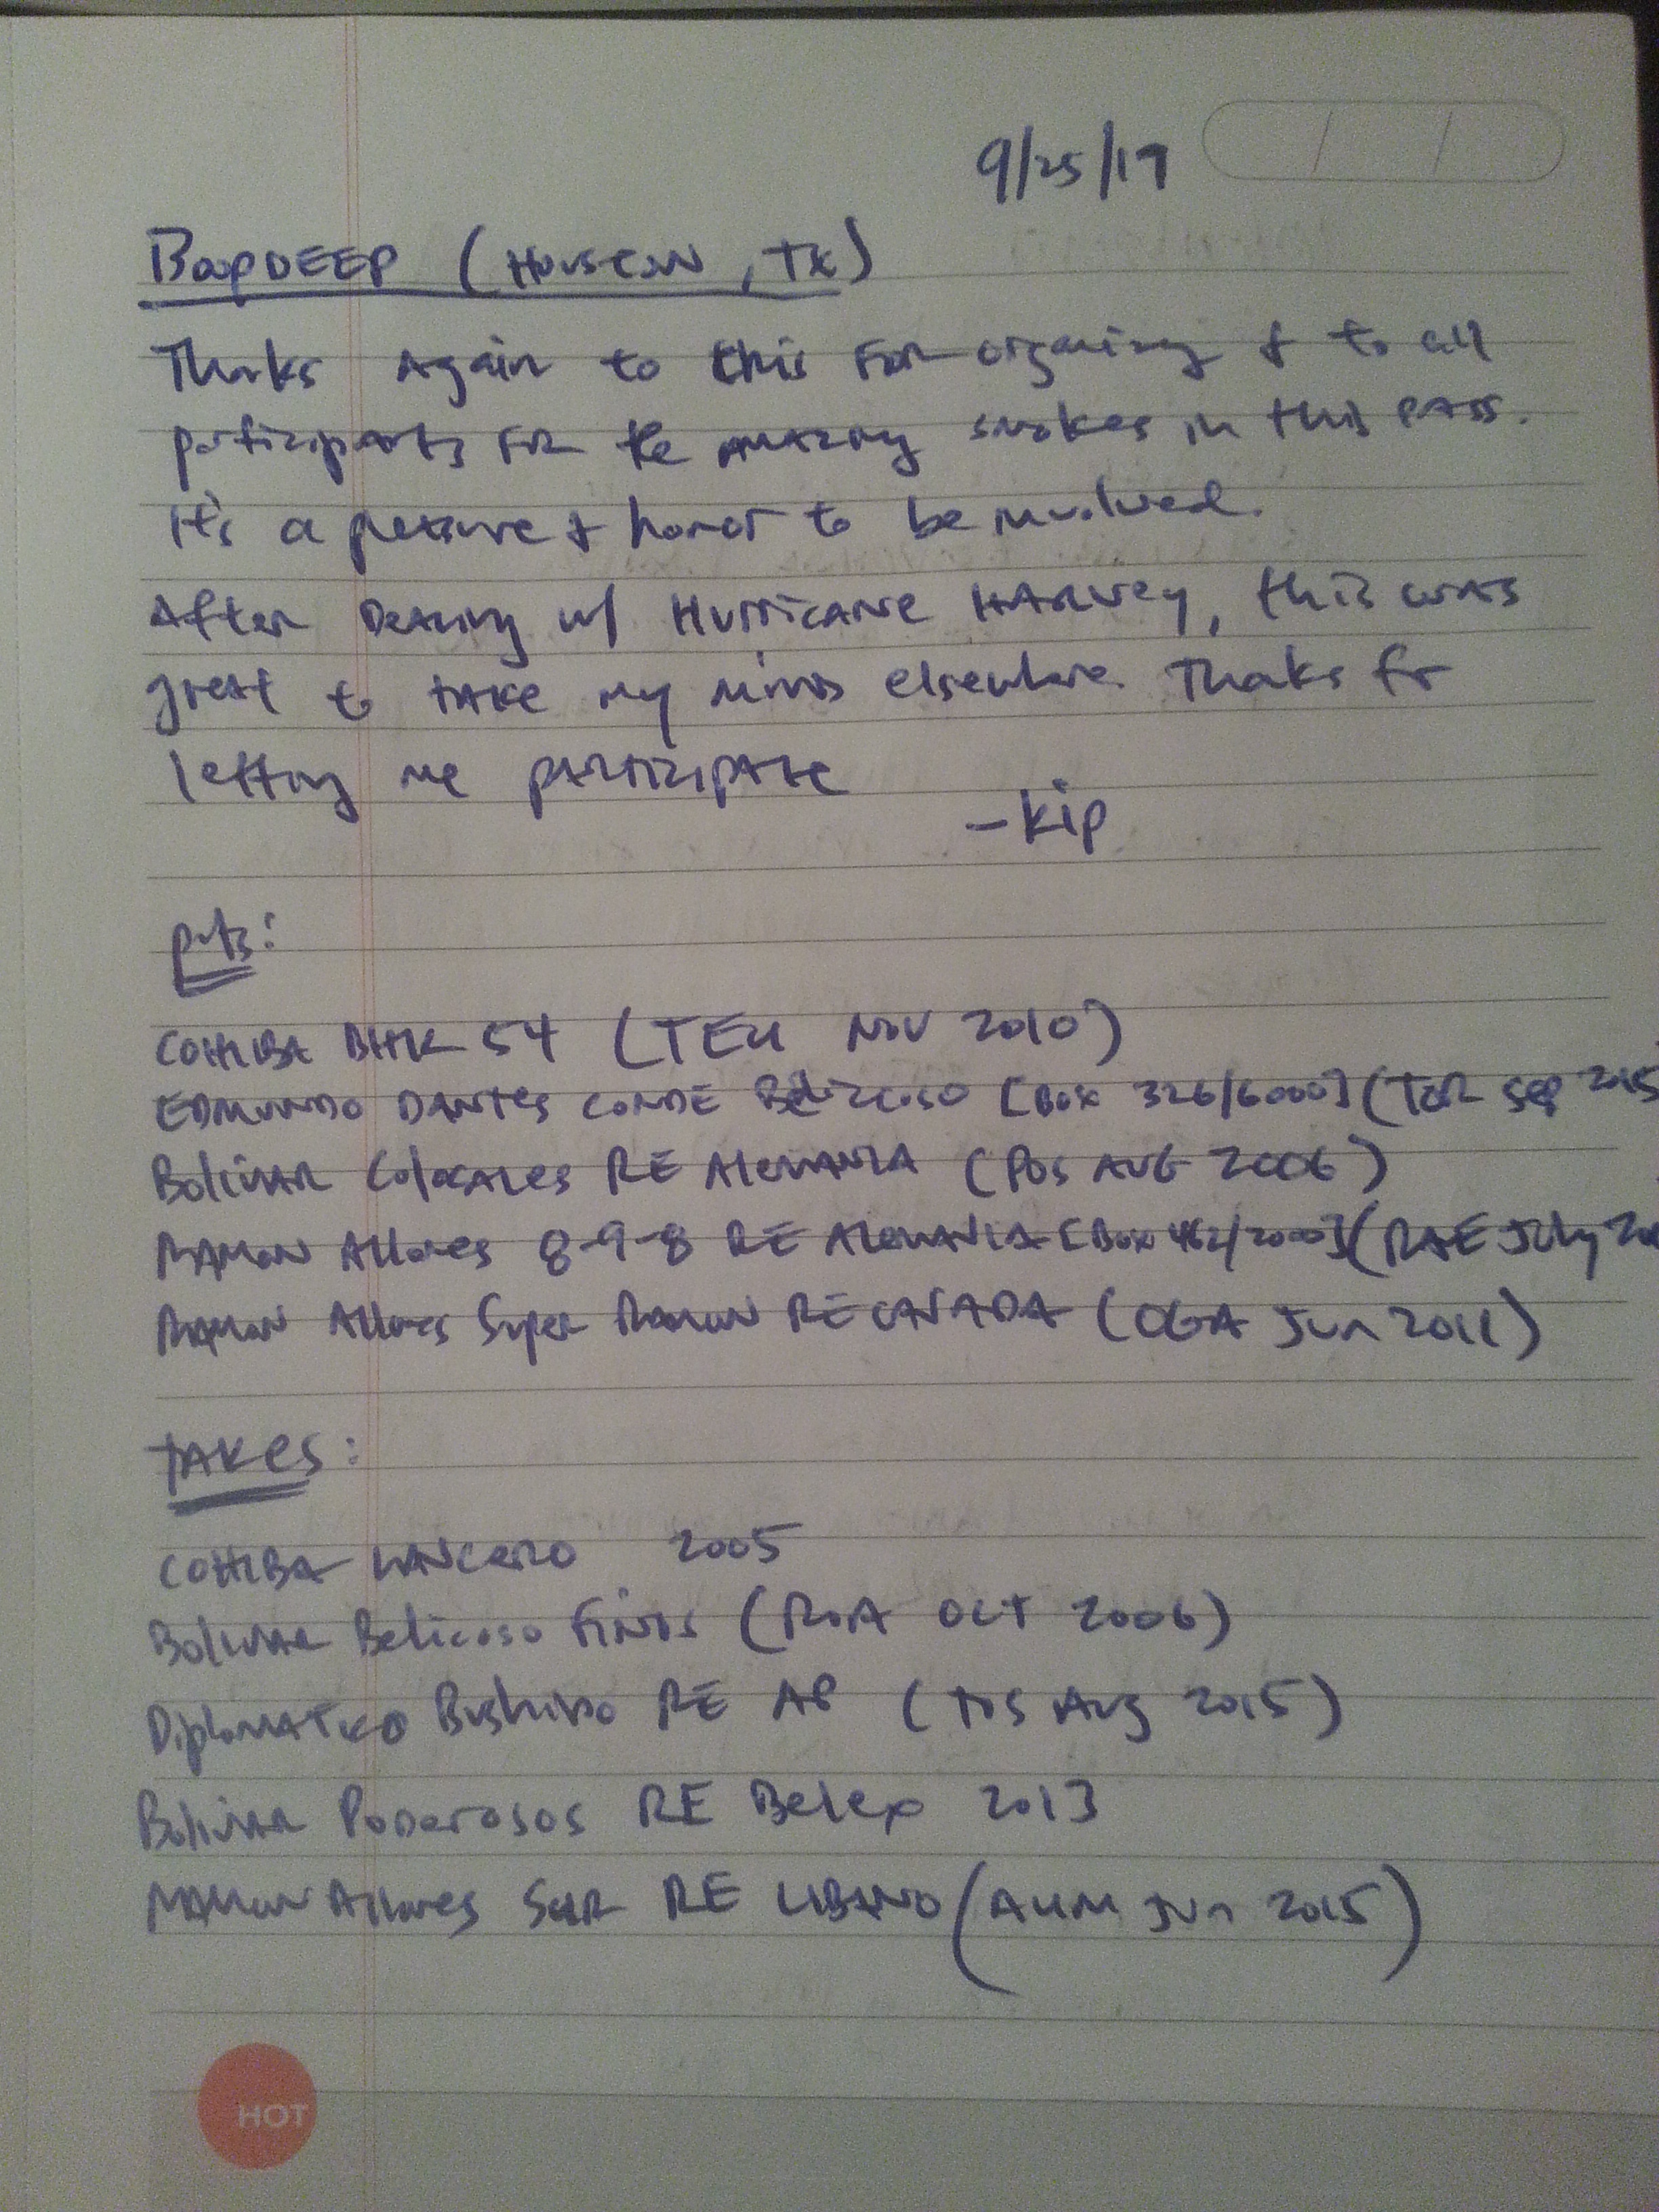 9/25/17
BoopDEEP (Houston, TX)
Thanks Again to Chris For organizing & to all
participants For the amazing smokes in this pass.
It's a pleasure & honor to be involved.
After Dealing w/ Hurricane Harvey, this was
great to take my mind elsewhere. Thanks for
letting me participate
- Kip
puts:
COHIBA BHK 54 (TEU NOV 2010)
EDMUNDO DANTES CONDE Belicoso [Box 326/6000] (Sep 2015
Bolivar Colosales RE Alemania (POS AUG 2006)
Ramon Allones 8-9-8 RE Alemania [Box 462/2000] (RAE July 20
Ramon Allones Super Ramon RE CANADA (OGA Jun 2011)
TAKES:
COHIBA LANCERO 2005
Bolivar Belicoso Finos (OCT 2006)
Diplomatico Bushido RE AP (TOS Aug 2015)
Bolivar Poderosos RE Belux 2013
Ramon Allones RE LIBANO (AUM Jun 2015)
HOT